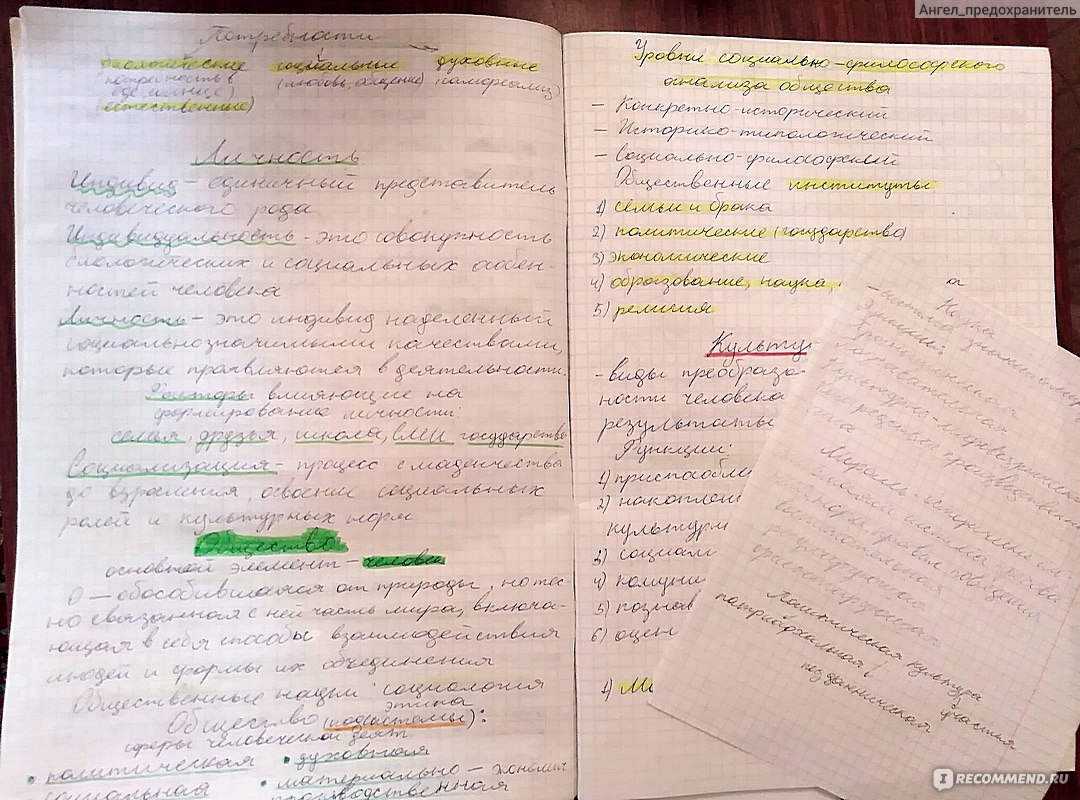 Ангел_предохранитель
Потребности
биологические социальные духовные
(любовь, общение) (самореализ)
естественные)
Личность
Индивид – одиничный представитель
человеческого рода
Индивидуальность – это совокупность
биологических и социальных особен-
ностей человека
Личность – это индивид наделенный
социальнозначимыми качествами,
которые проявляются в деятельности.
Факторы влияющие на
формирование личности:
семья, друзья, школа, СМИ, государство
Социализация – процесс с младенчества
до взросления, освоение социальных
ролей и культурных норм
Общество
основной элемент – человек
О – обособившаяся от природы, но тес-
но связанная с ней часть мира, включа-
ющая в себя способы взаимодействия
людей и формы их объединения
Общественные науки: социология
этика
Общество (подсистемы):
сферы человеческой деят
• политическая • духовная
социальная • материально – экономич
производственная
Уровни социально-философского
анализа общества
– Конкретно-исторический
– Историко-типологический
– Социально-философский
Общественные институты
1) семьи и брака
2) политические (государство)
3) экономические
4) образование, наука,
5) религия
Культур
- виды преобразо-
ности человека
результаты
Функции:
1) приспособле
2) накоплен
культурн
3) социали
4) комуни
5) познав
6) оцен
1) Ма
Наука
функции:
Культурно-мировоззренческая
Мораль – исторически
система нравств
поведения
регулирующая
Политическая культура
патриархальная участия
подданническая
IRECOMMEND.RU